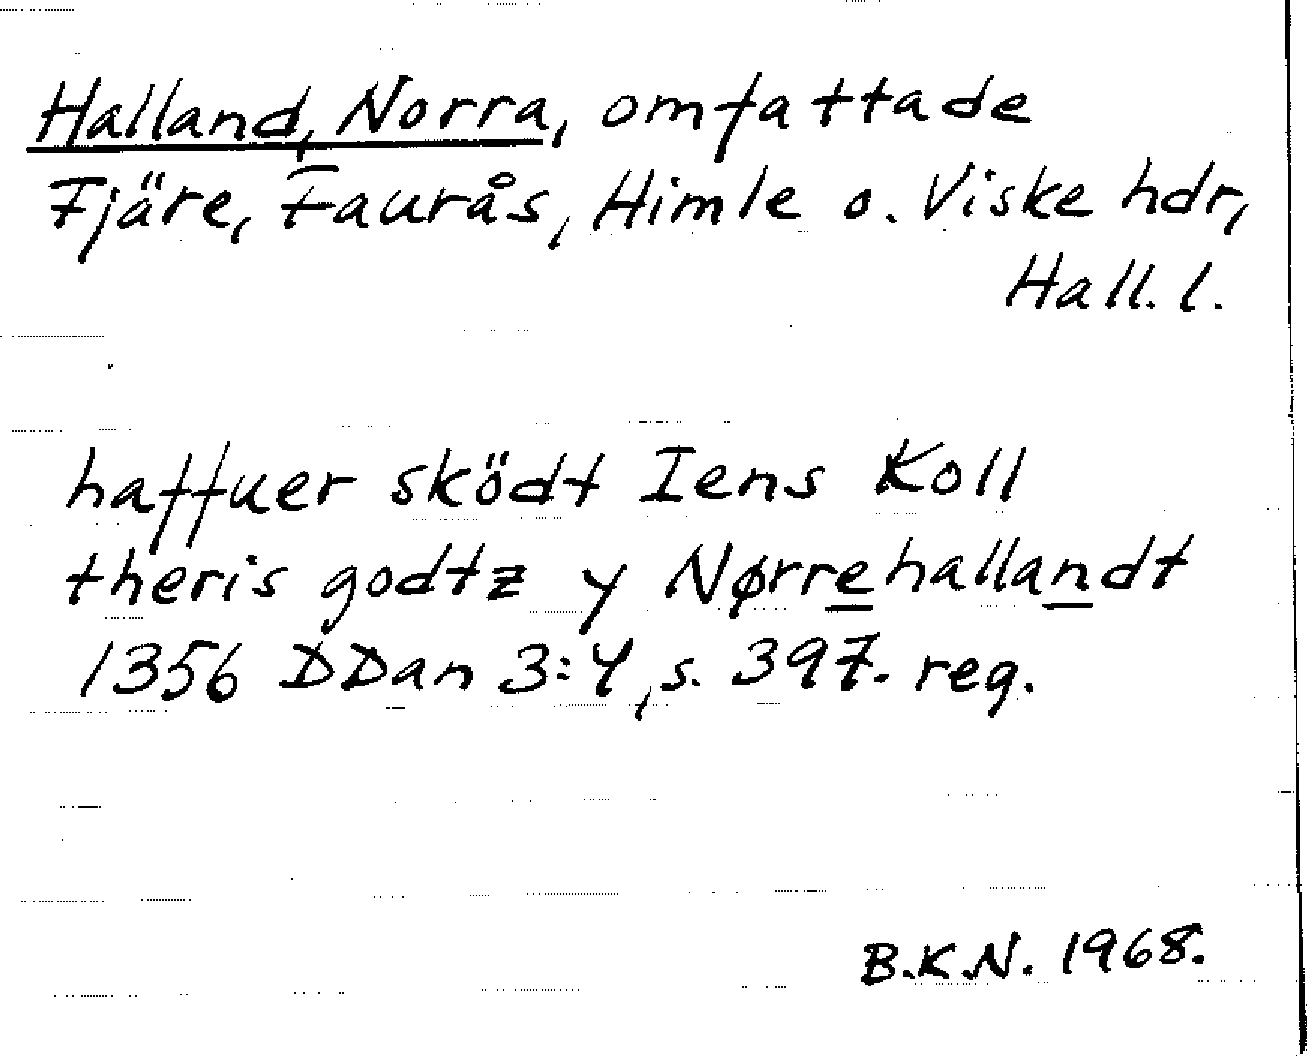 Halland, Norra, omfattade
Fjäre, Faurås, Himle o. Viske hdr,
Hall. l.
haffuer sködt Iens Koll
theris godtz y Nørrehallandt
1356 DDan 3:4, s. 397. reg.
B.K.N. 1968.